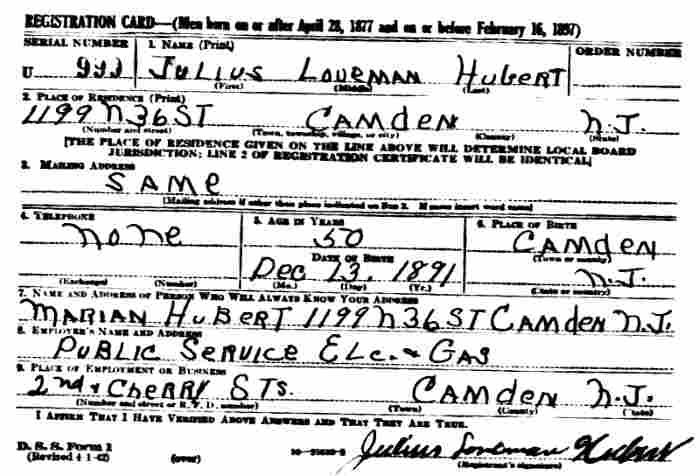 REGISTRATION CARD—(Men born on or after April 28, 1877 and on or before February 16, 1897)
SERIAL NUMBER 1. NAME (Print) ORDER NUMBER
U 993 JULIUS LOVEMAN HUBERT
(First) (Middle) (Last)
2. PLACE OF RESIDENCE (Print)
1199 N 36 ST CAMDEN N.J.
(Number and street) (Town, township, village, or city) (County) (State)
[THE PLACE OF RESIDENCE GIVEN ON THE LINE ABOVE WILL DETERMINE LOCAL BOARD
JURISDICTION; LINE 2 OF REGISTRATION CERTIFICATE WILL BE IDENTICAL]
3. MAILING ADDRESS
SAME
[Mailing address if other than place indicated on line 2. If same insert word same]
4. TELEPHONE 5. AGE IN YEARS 6. PLACE OF BIRTH
NONE 50 CAMDEN
DATE OF BIRTH (Town or county)
Dec 13, 1891 N.J.
(Exchange) (Number) (Mo.) (Day) (Yr.) (State or country)
7. NAME AND ADDRESS OF PERSON WHO WILL ALWAYS KNOW YOUR ADDRESS
MARIAN HUBERT 1199 N 36 ST CAMDEN N.J.
8. EMPLOYER'S NAME AND ADDRESS
PUBLIC SERVICE ELC. & GAS
9. PLACE OF EMPLOYMENT OR BUSINESS
2nd & CHERRY STS. CAMDEN N.J.
(Number and street or R. F. D. number) (Town) (County) (State)
I AFFIRM THAT I HAVE VERIFIED ABOVE ANSWERS AND THAT THEY ARE TRUE.
D. S. S. Form 1
(Revised 4-1-42) (over) Julius Loveman Hubert
(Registrant's signature)